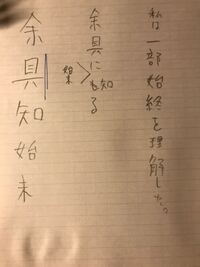 私は一部始終を理解した。
余具に知る
余具知始末